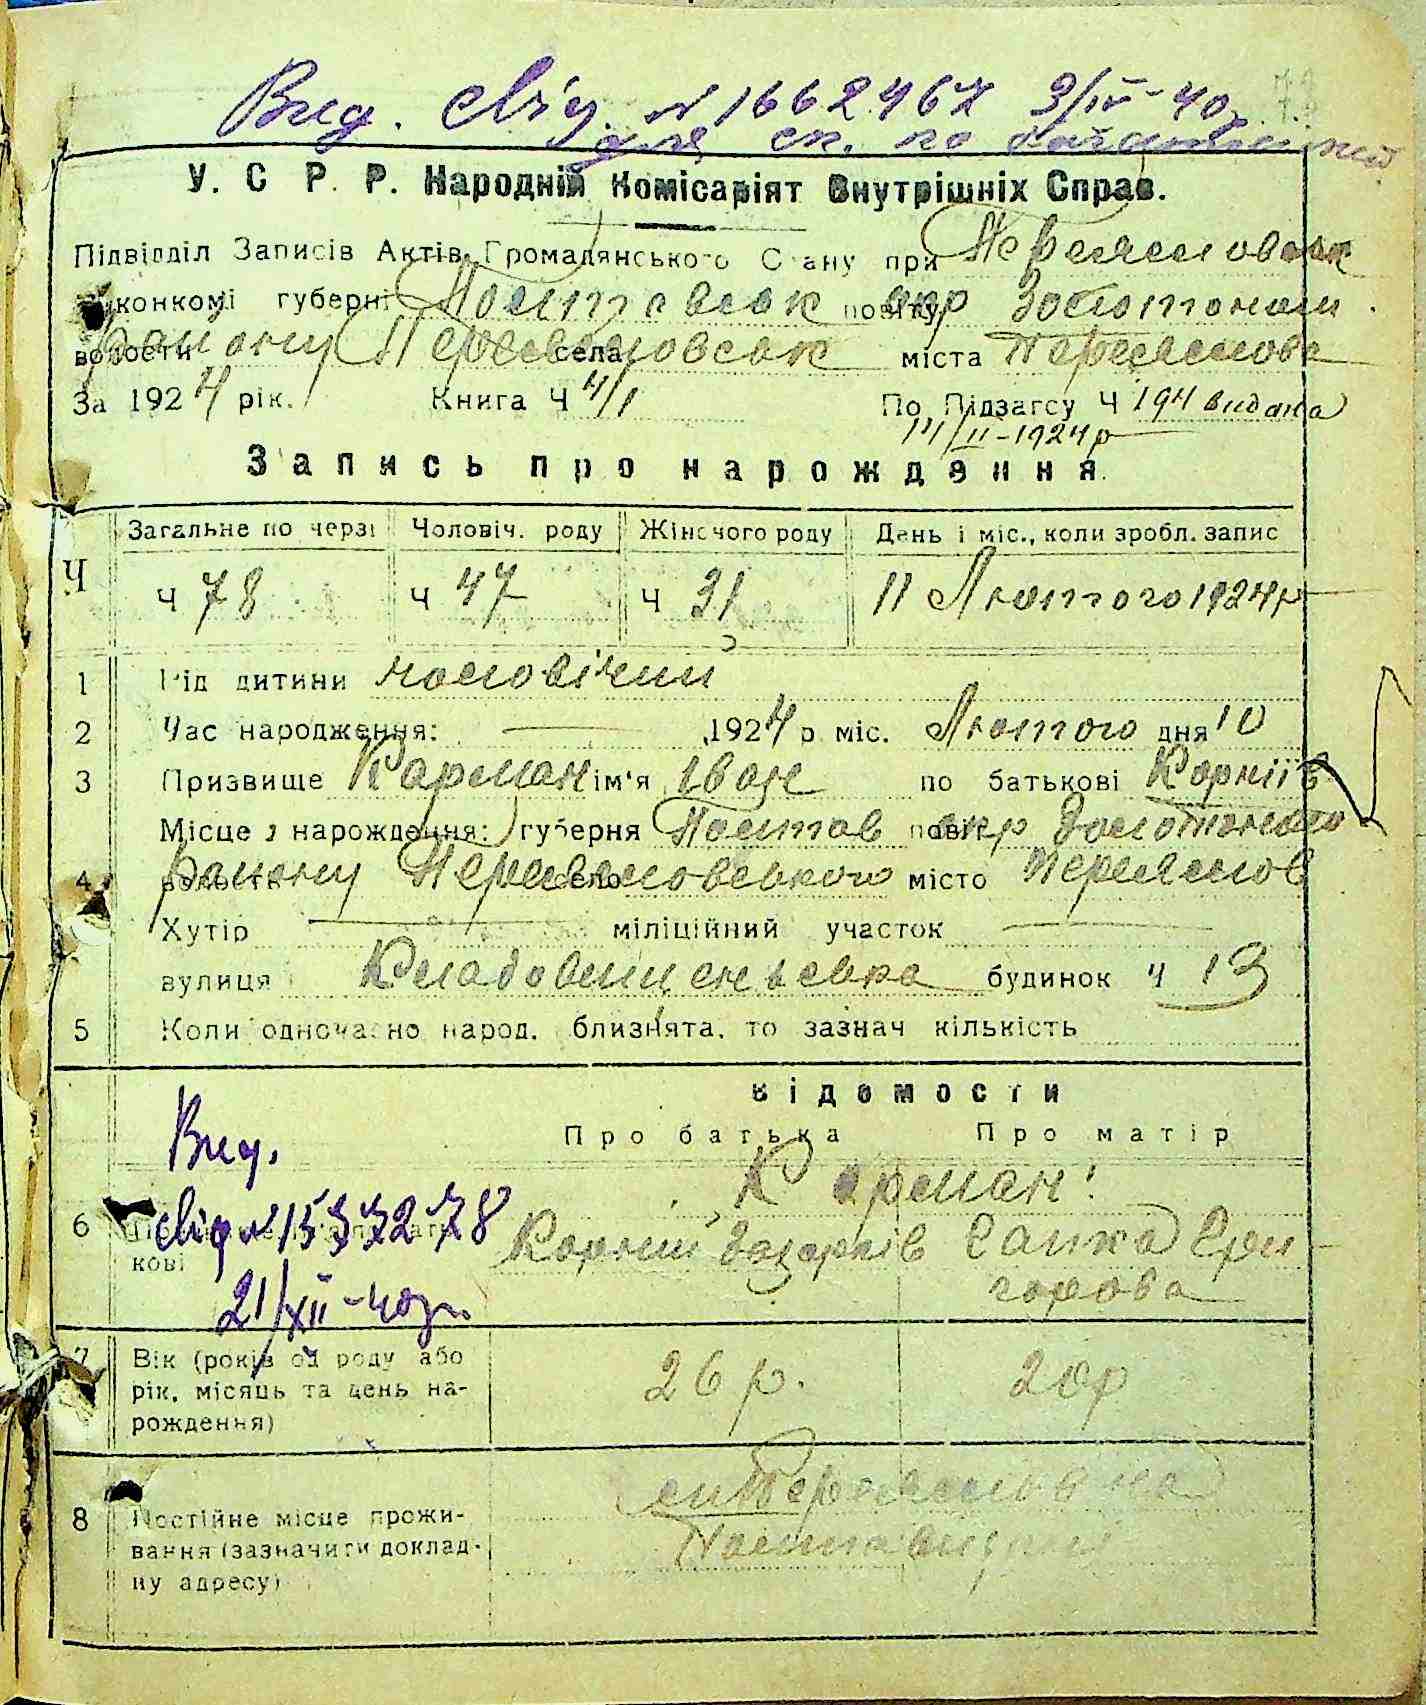 Вид. свід. № 1662467 9/IV-40
для
У. С Р. Р. Народній Комісаріят Внутрішніх Справ.
Підвідділ Записів Актів Громадянського Стану при Переяловськ
конкомі губерні Полтавськ повіту окр Золотонош
волости району Переяславськ села міста Переяслова
За 1924 рік. Книга Ч 4/1 По Підзагсу Ч 194 видана
14/II-1924р
Запись про нарождення.
Ч Загальне по черзі Чоловіч. роду Жіночого роду День і міс., коли зробл. запис
Ч 78 Ч 47 Ч 31 11 Лютого 1924р
1 Рід дитини чоловічий
2 Час народження: 1924 р міс. Лютого дня 10
3 Призвище Карман ім'я Іван по батькові Корніїв
Місце нарождення: губерня Полтав повіт окр Золотоноська
4 волость району Переяславського село місто Переяслов
Хутір міліційний участок
вулиця будинок Ч 13
5 Коли одночасно народ. близнята, то зазнач кількість
Відомости
Вид. Про батька Про матір
Карман
6 свід № 1537278 Корній Азарків Санка Гри-
кові горова
21/XII-40р.
7 Вік (років од роду або 26 р. 20р
рік, місяць та день на-
рождення)
8 Постійне місце прожи-
вання (зазначити доклад-
ну адресу)